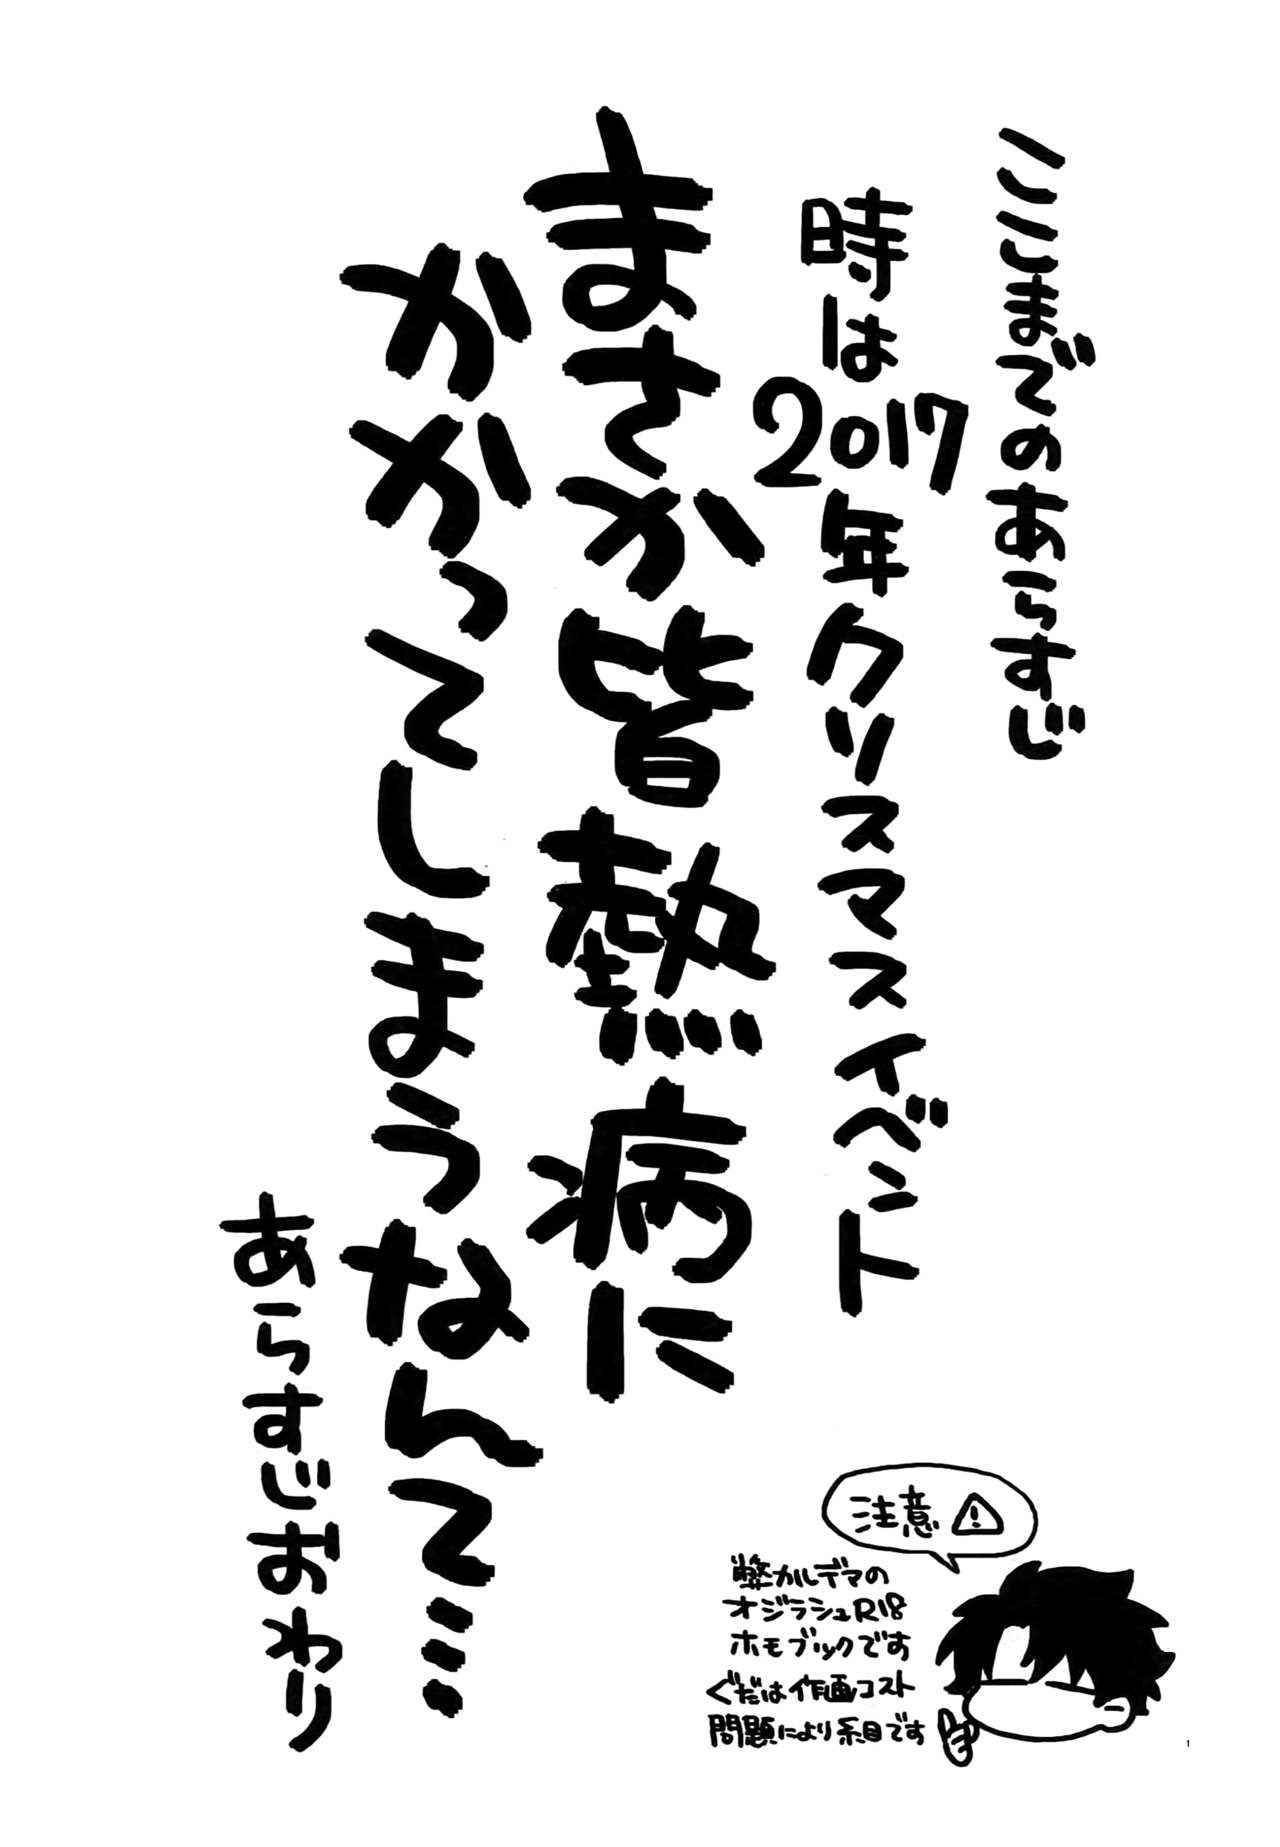 ここまでのあらすじ
時は2017年クリスマスイベント
まさか皆熱病に
かかってしまうなんて…
あらすじおわり
注意⚠
弊カルデアの
オジラシュR18
ホモブックです
ぐだは作画コスト
問題により糸目です
1